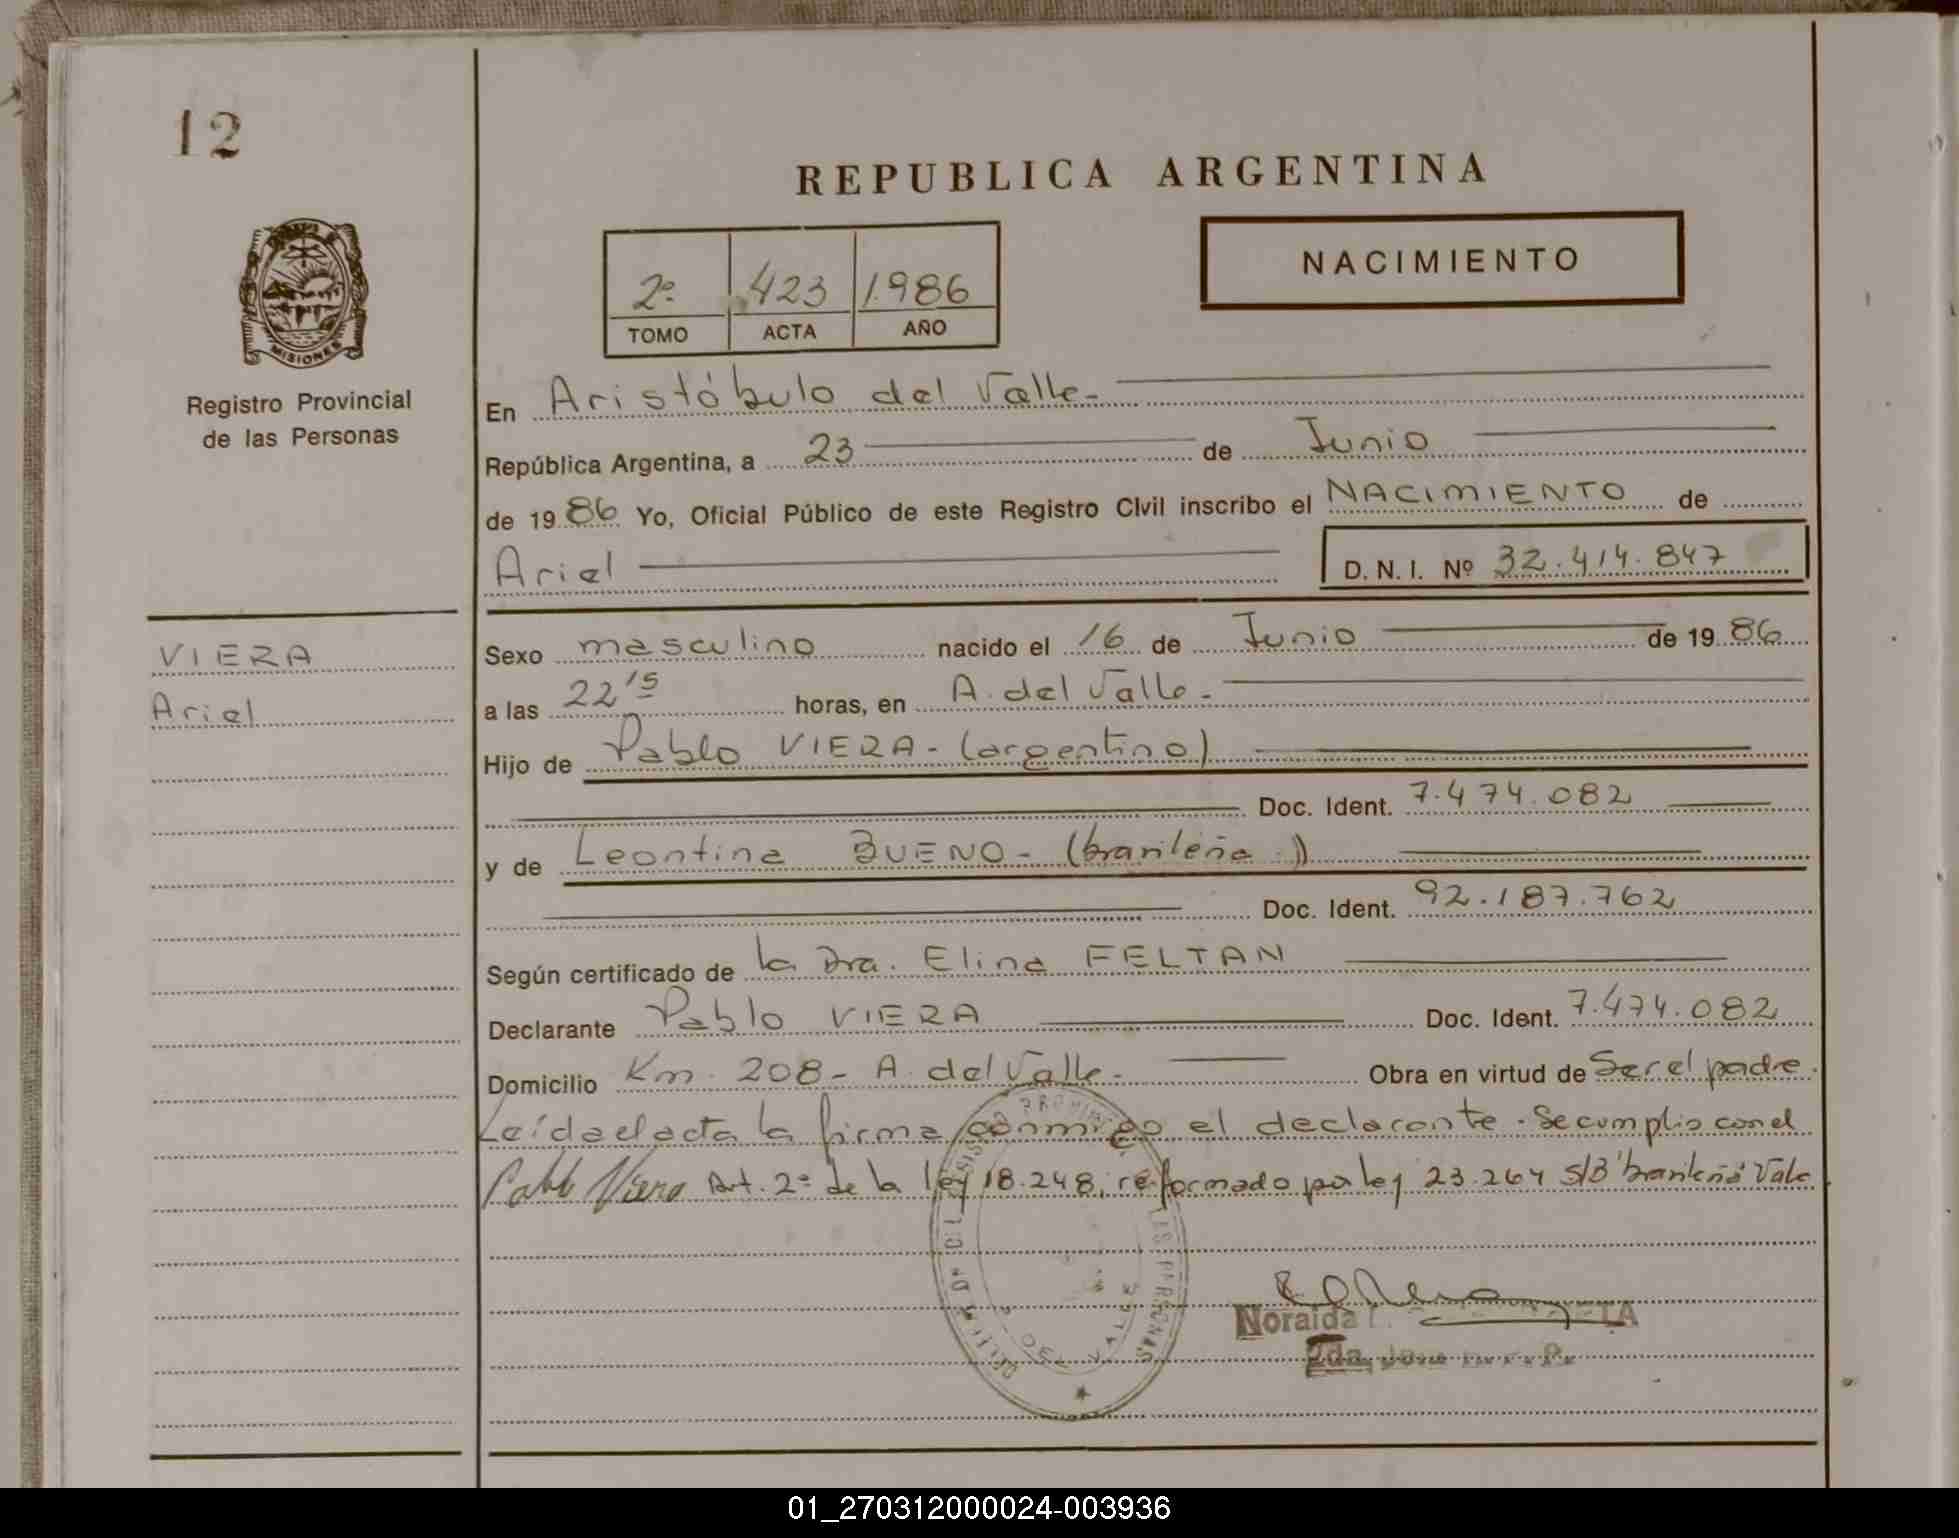 12
REPUBLICA ARGENTINA
NACIMIENTO
2º 423 1986
TOMO ACTA AÑO
MISIONES
Registro Provincial
de las Personas
En Aristóbulo del Valle-
República Argentina, a 23 de Junio
de 1986 Yo, Oficial Público de este Registro Civil inscribo el NACIMIENTO de
Ariel D. N. I. Nº 32.414.847
VIERA
Ariel
Sexo masculino nacido el 16 de Junio de 1986
a las 22 15 horas, en A. del Valle-
Hijo de Pablo VIERA- (argentino)
Doc. Ident. 7.474.082
y de Leontina BUENO- (brasileña)
Doc. Ident. 92.187.762
Según certificado de la Dra. Elina FELTAN
Declarante Pablo VIERA Doc. Ident. 7.474.082
Domicilio Km. 208- A. del Valle- Obra en virtud de Ser el padre.
Leída el acta la firma conmigo el declarante. Se cumplio con el
Pablo Viera Art. 2º de la ley 18.248, reformado por ley 23.264 S/B "brasileña" Vale
DEL VALLE
Noraida
2da.
01_270312000024-003936